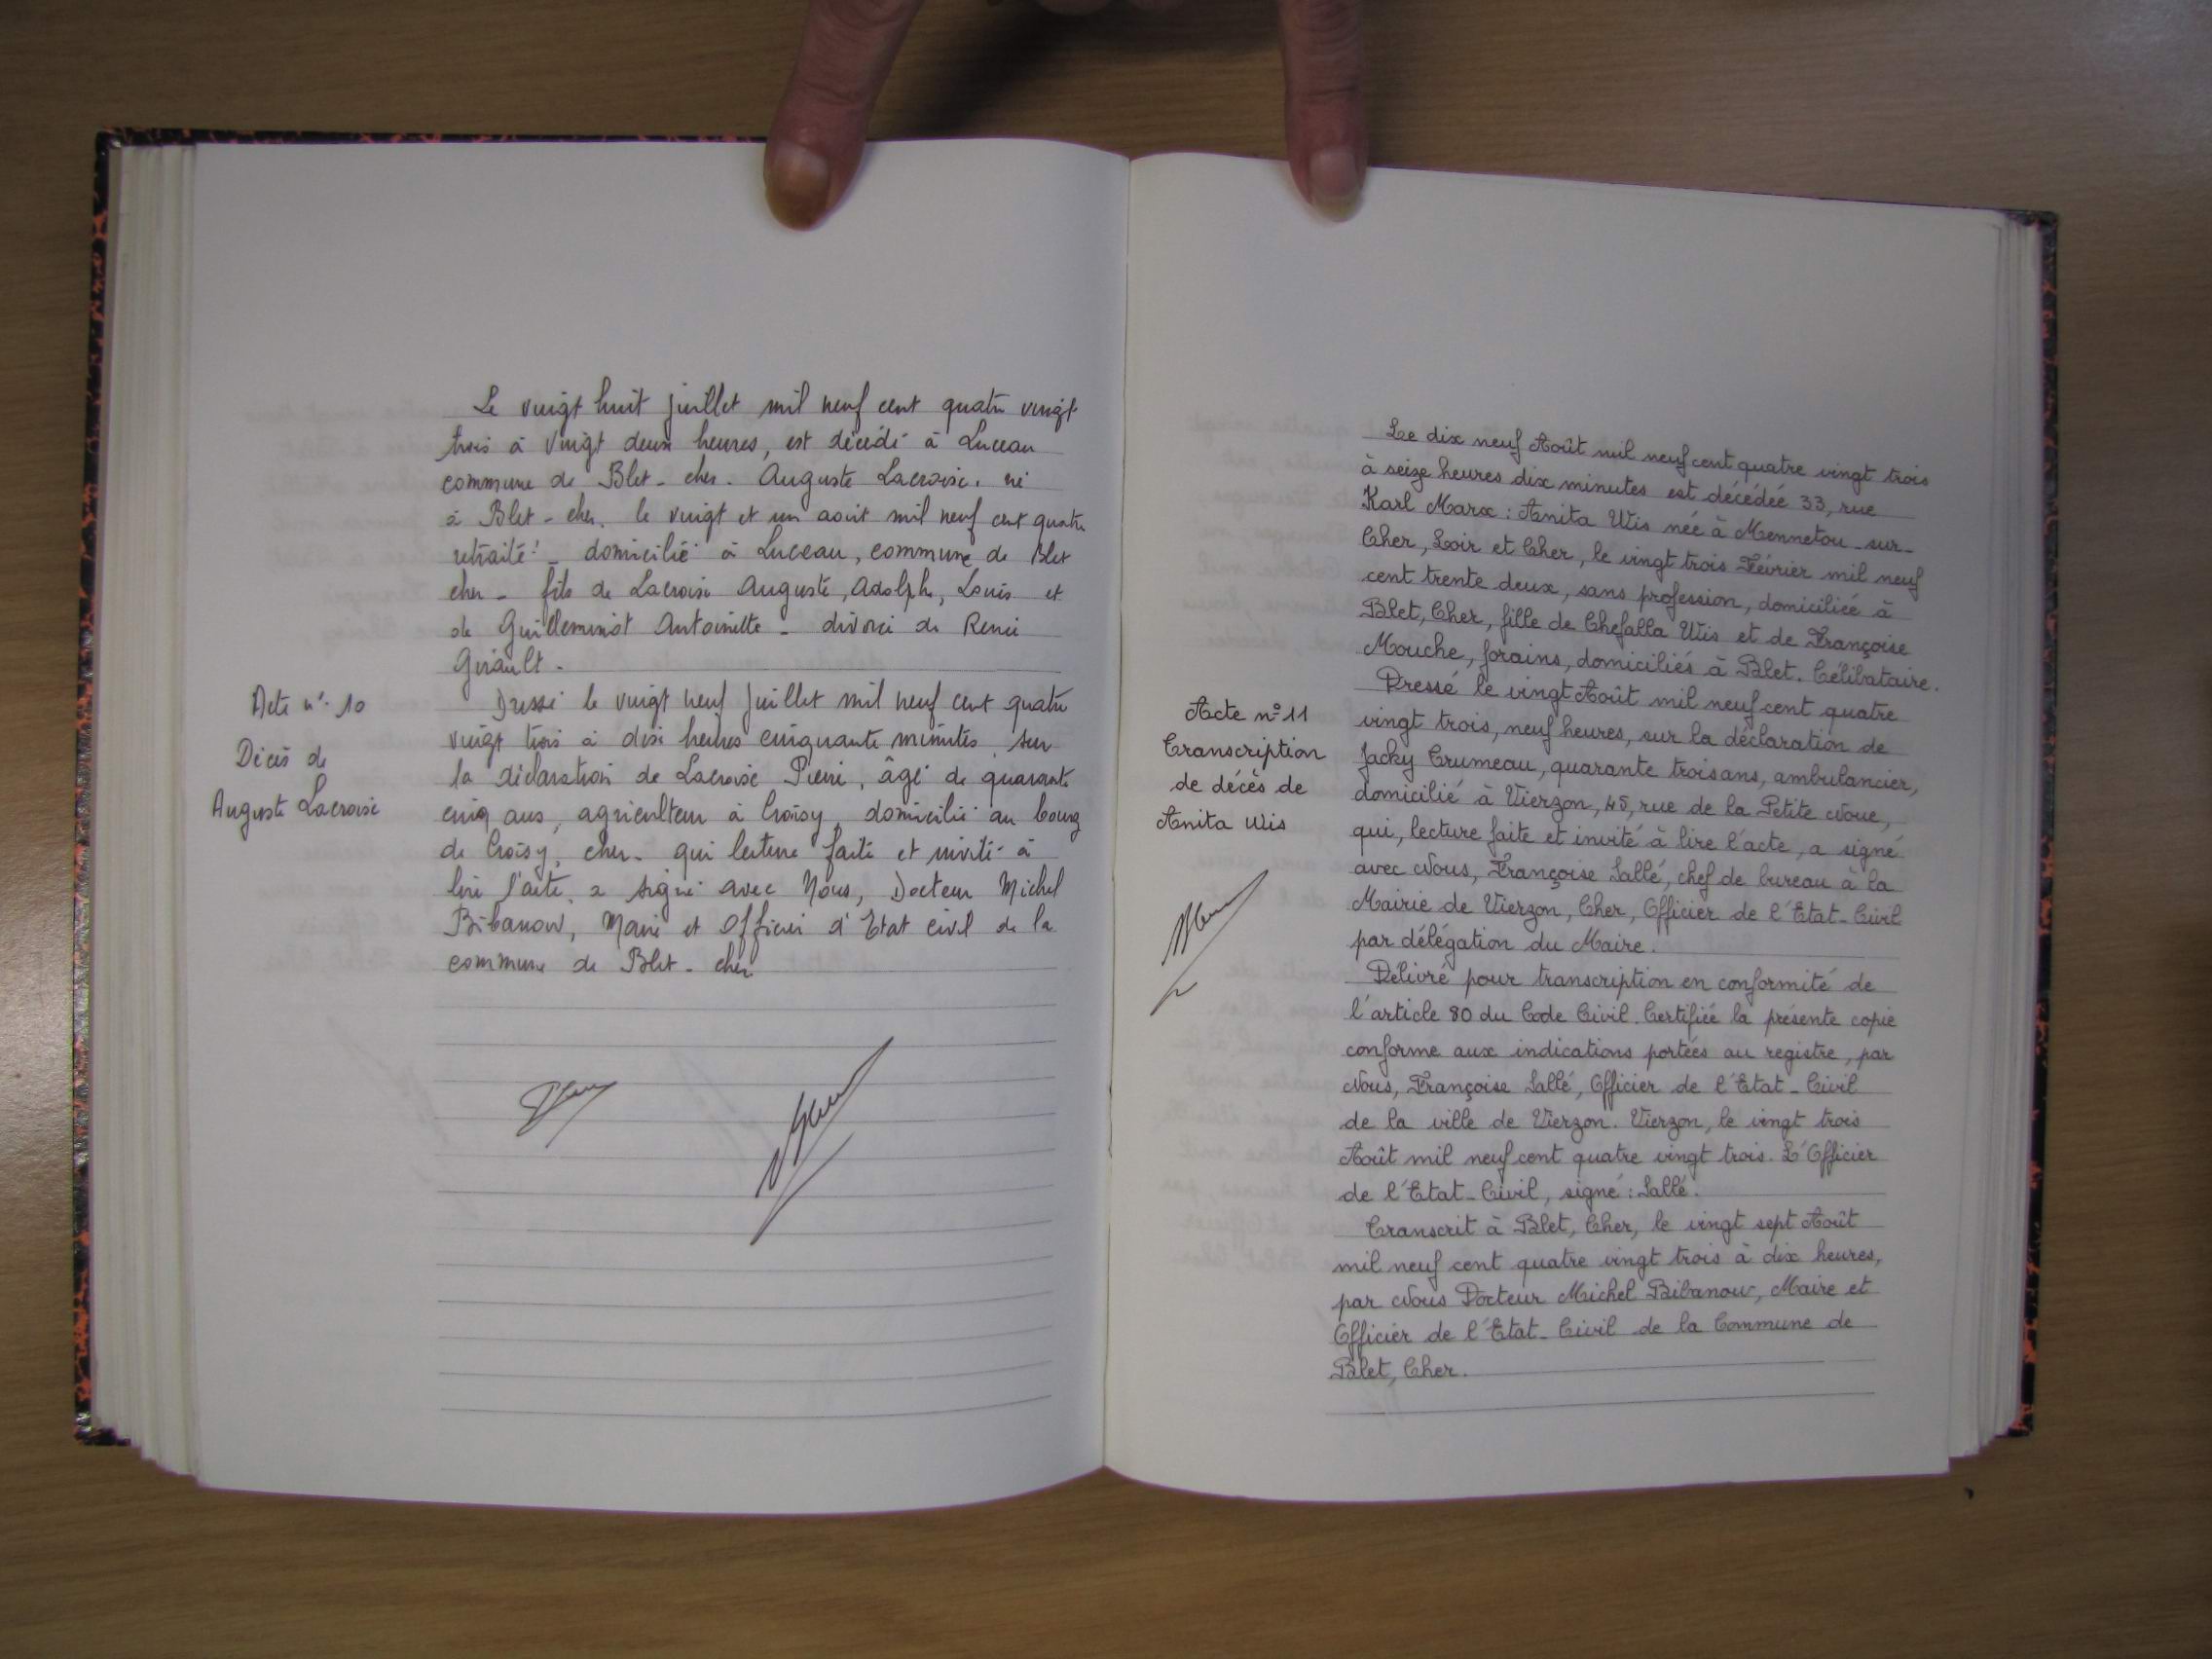 Le vingt huit juillet mil neuf cent quatre vingt
trois à vingt deux heures, est décédé à Luceau
commune de Blet - cher. Auguste Lacroix, né
à Blet - cher, le vingt et un août mil neuf cent quatre
retraité - domicilié à Luceau, commune de Blet
cher - fils de Lacroix Auguste, Adolphe, Louis et
de Guilleminot Antoinette - divorcé de Renée
Girault -
Acte n° 10
Décès de
Auguste Lacroix
Dressé le vingt neuf juillet mil neuf cent quatre
vingt trois à dix heures cinquante minutes sur
la déclaration de Lacroix Pierre, âgé de quarante
cinq ans, agriculteur à Croisy, domicilié au bourg
de Croisy, cher - qui lecture faite et invité à
lire l'acte, a signé avec Nous, Docteur Michel
Bibanow, Maire et Officier d'Etat civil de la
commune de Blet - cher
Le dix neuf Août mil neuf cent quatre vingt trois
à seize heures dix minutes est décédée 33, rue
Karl Marx : Anita Wis née à Mennetou-sur-
Cher, Loir et Cher, le vingt trois Février mil neuf
cent trente deux, sans profession, domiciliée à
Blet, Cher, fille de Chefalla Wis et de Françoise
Mouche, forains, domiciliés à Blet. Célibataire.
Acte n° 11
Transcription
de décès de
Anita Wis
Dressé le vingt Août mil neuf cent quatre
vingt trois, neuf heures, sur la déclaration de
Jacky Trumeau, quarante trois ans, ambulancier,
domicilié à Vierzon, 45, rue de la Petite Noue,
qui, lecture faite et invité à lire l'acte, a signé
avec Nous, Françoise Sallé, chef de bureau à la
Mairie de Vierzon, Cher, Officier de l'Etat-Civil
par délégation du Maire.
Délivré pour transcription en conformité de
l'article 80 du Code Civil. Certifiée la présente copie
conforme aux indications portées au registre, par
Nous, Françoise Sallé, Officier de l'Etat-Civil
de la ville de Vierzon. Vierzon, le vingt trois
Août mil neuf cent quatre vingt trois. L'Officier
de l'Etat-Civil, signé : Sallé.
Transcrit à Blet, Cher, le vingt sept Août
mil neuf cent quatre vingt trois à dix heures,
par Nous Docteur Michel Bibanow, Maire et
Officier de l'Etat-Civil de la Commune de
Blet, Cher.